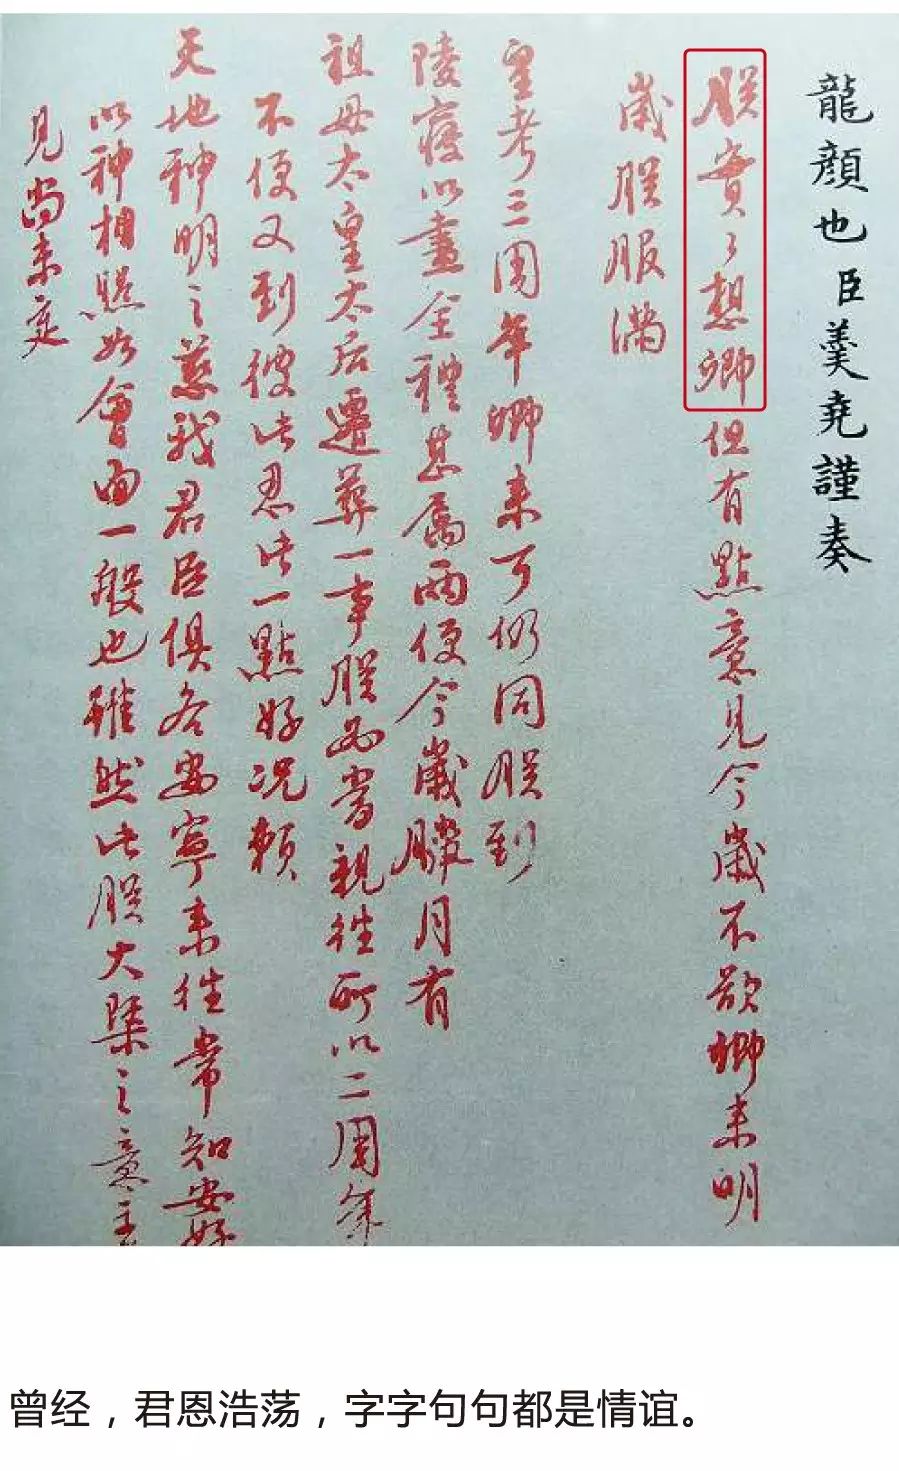 龍顏也臣羹堯謹奏
朕實々想卿但有點意見今歲不欲卿来明
歲朕服滿
皇考三周年卿来可仍同朕到
陵寢以盡全禮甚屬兩便今歲臘月有
祖母太皇太后遷葬一事朕必當親往所以二周年
不便又到彼此忍此一點好况賴
天地神明之慈我君臣俱各安寧来往常知安好
以神相照如會面一般也雖然此朕大槩之意
見尚未定
曾经，君恩浩荡，字字句句都是情谊。